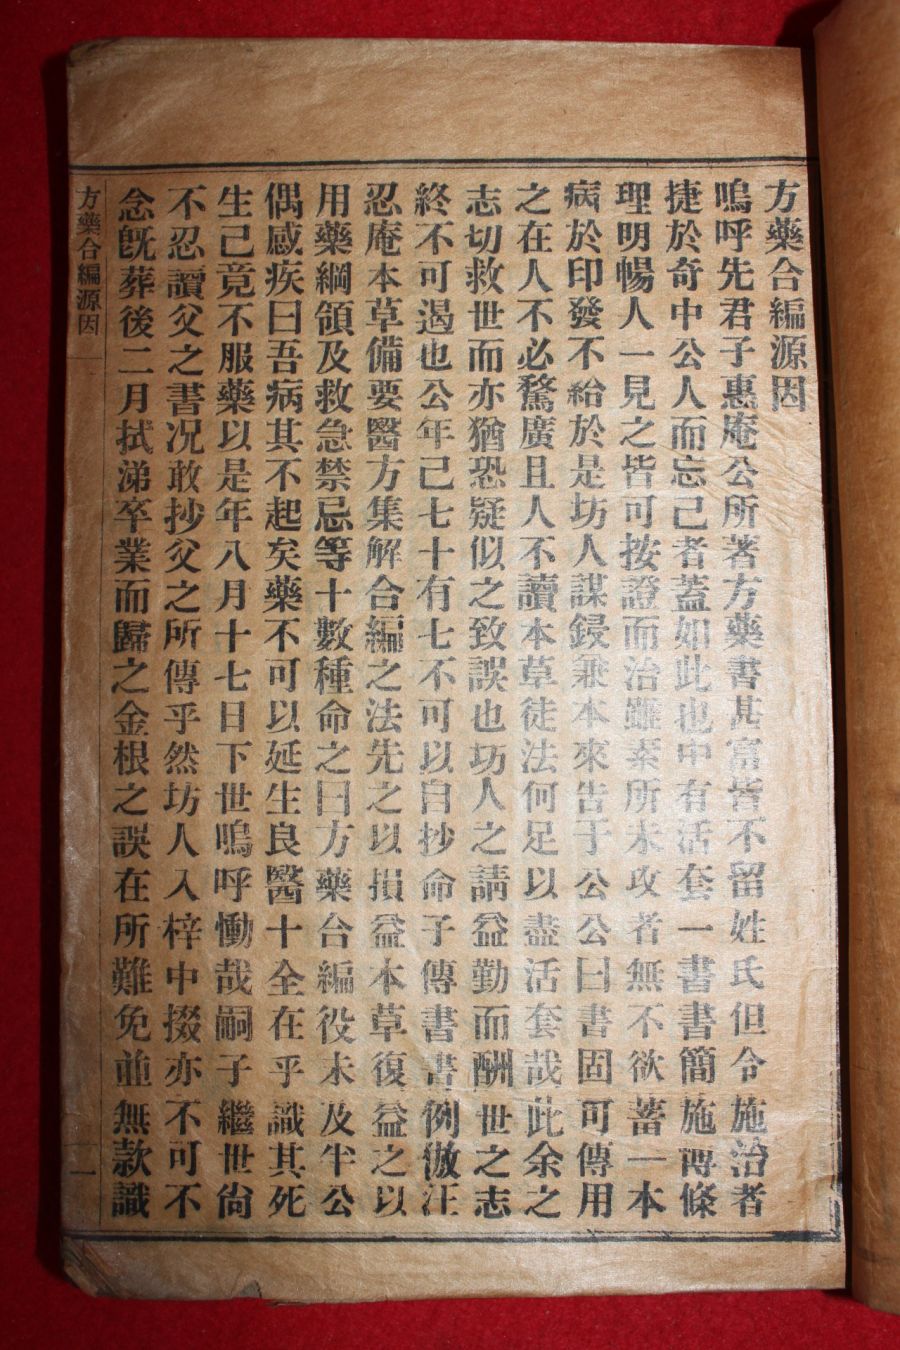 方藥合編源因
嗚呼先君子惠庵公所著方藥書甚富皆不留姓氏但令施治者
捷於奇中公人而忘己者蓋如此也中有活套一書書簡施博條
理明暢人一見之皆可按證而治雖素所未攻者無不欲蓄一本
病於印發不給於是坊人謀鋟兼本來告于公公曰書固可傳用
之在人不必騖廣且人不讀本草徒法何足以盡活套哉此余之
志切救世而亦猶恐疑似之致誤也功人之請益勤而酬世之志
終不可遏也公年己七十有七不可以自抄命子傳書書例倣汪
忍庵本草備要醫方集解合編之法先之以損益本草復益之以
用藥綱領及救急禁忌等十數種命之曰方藥合編役未及半公
偶感疾曰吾病其不起矣藥不可以延生良醫十全在乎識其死
生己竟不服藥以是年八月十七日下世嗚呼慟哉嗣子繼世尙
不忍讀父之書况敢抄父之所傳乎然坊人入梓中掇亦不可不
念旣葬後二月拭涕卒業而歸之金根之誤在所難免並無款識
方藥合編源因
一